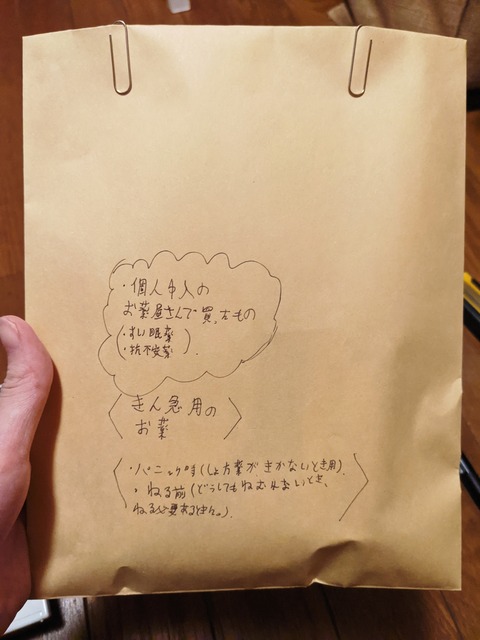 ・個人中人の
お薬屋さんで買ったもの
(・すい眠薬
・抗不安薬).
〈きん急用の
お薬〉
・パニック時(しょ方薬がきかないとき用).
・ねる前(どうしてもねむれないとき、
ねる必要あるとき。).